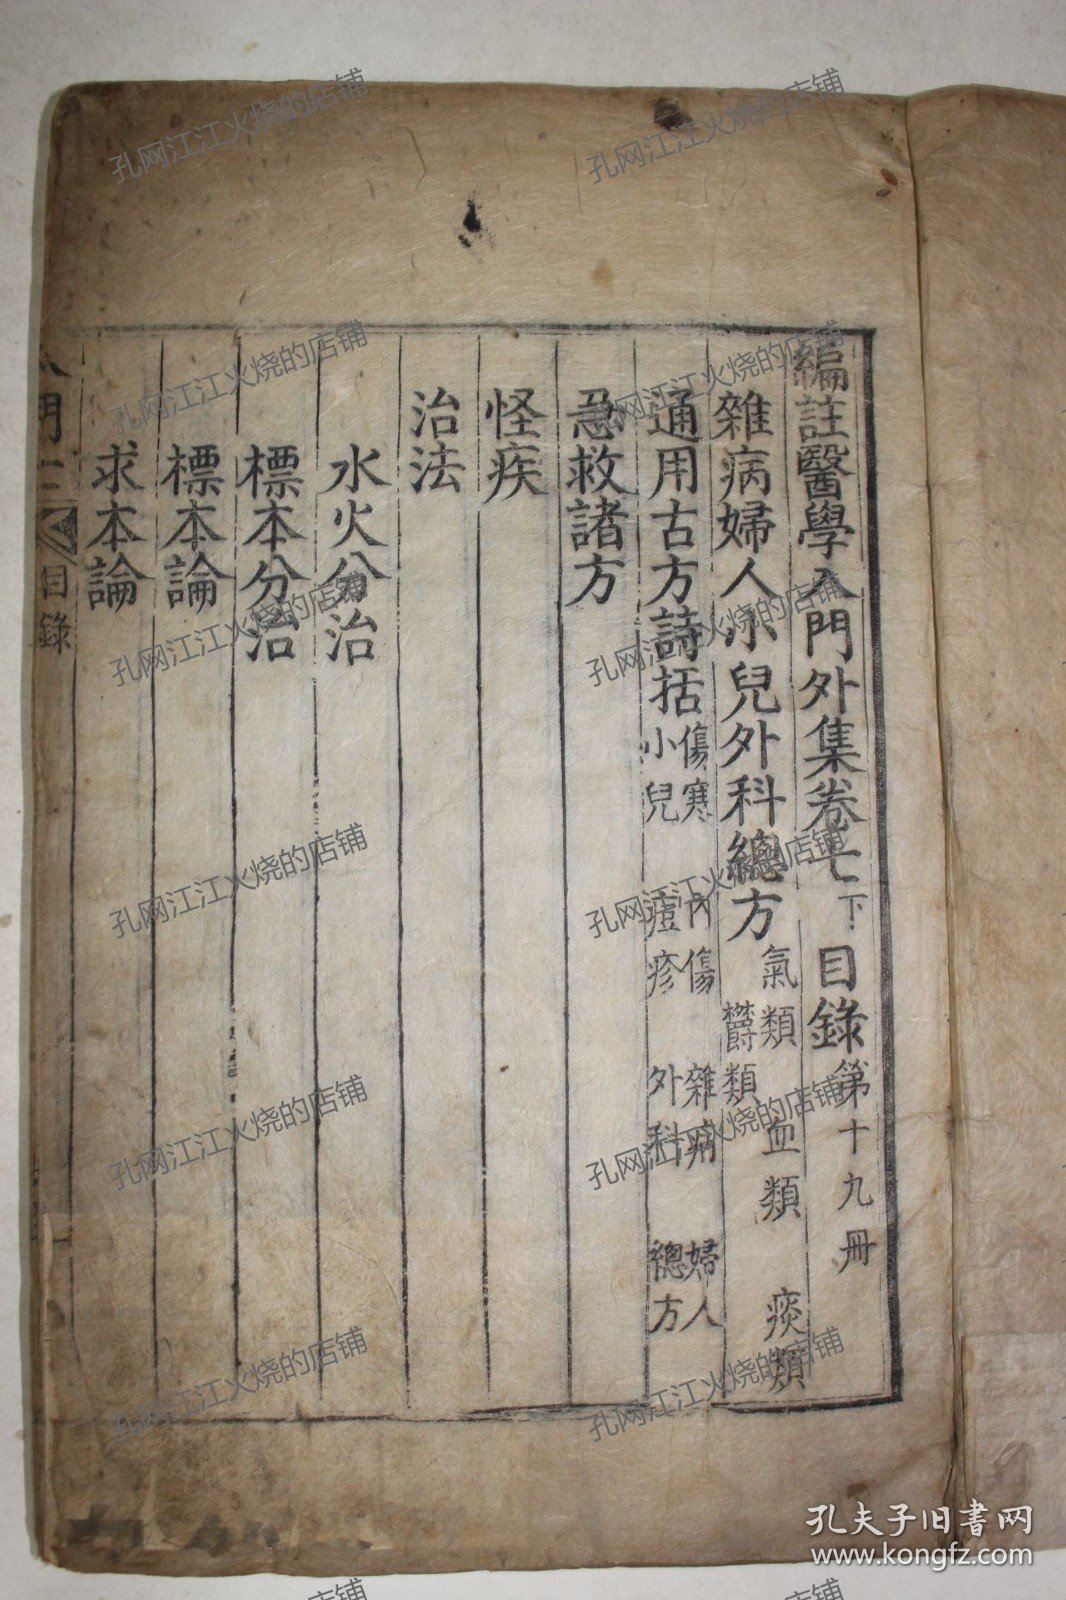 編註醫學入門外集卷七下 目錄 第十九冊
雜病婦人小兒外科總方 氣類 血類 痰類 欝類
通用古方詩括 傷寒 內傷 雜病 婦人 小兒 痘疹 外科 總方
急救諸方
怪疾
治法
水火分治
標本分治
標本論
求本論
入門 目錄
孔网江江火烧的店铺
孔夫子旧书网
www.kongfz.com